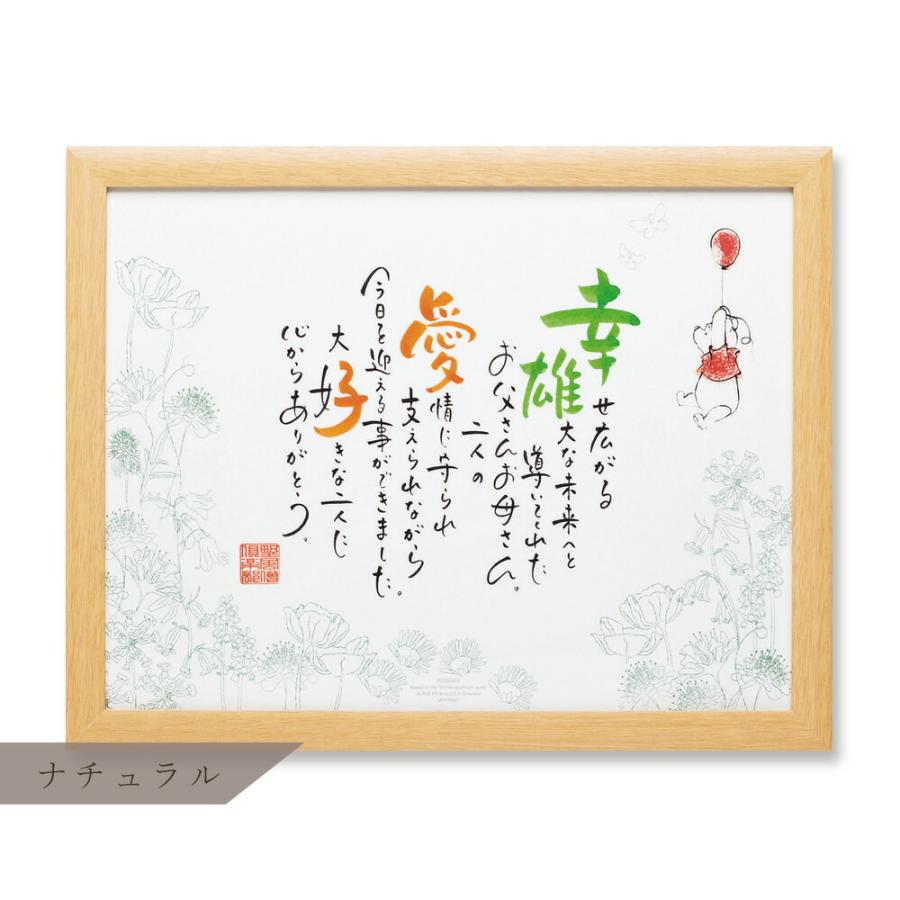 幸せ広がる
雄大な未来へと
導いてくれた
お父さんお母さん。
二人の
愛情に守られ
支えられながら
今日を迎える事ができました。
大好きな二人に
心からありがとう。
©DISNEY
Based on the "Winnie the Pooh" works
by A.A. Milne and E.H. Shepard.
ナチュラル